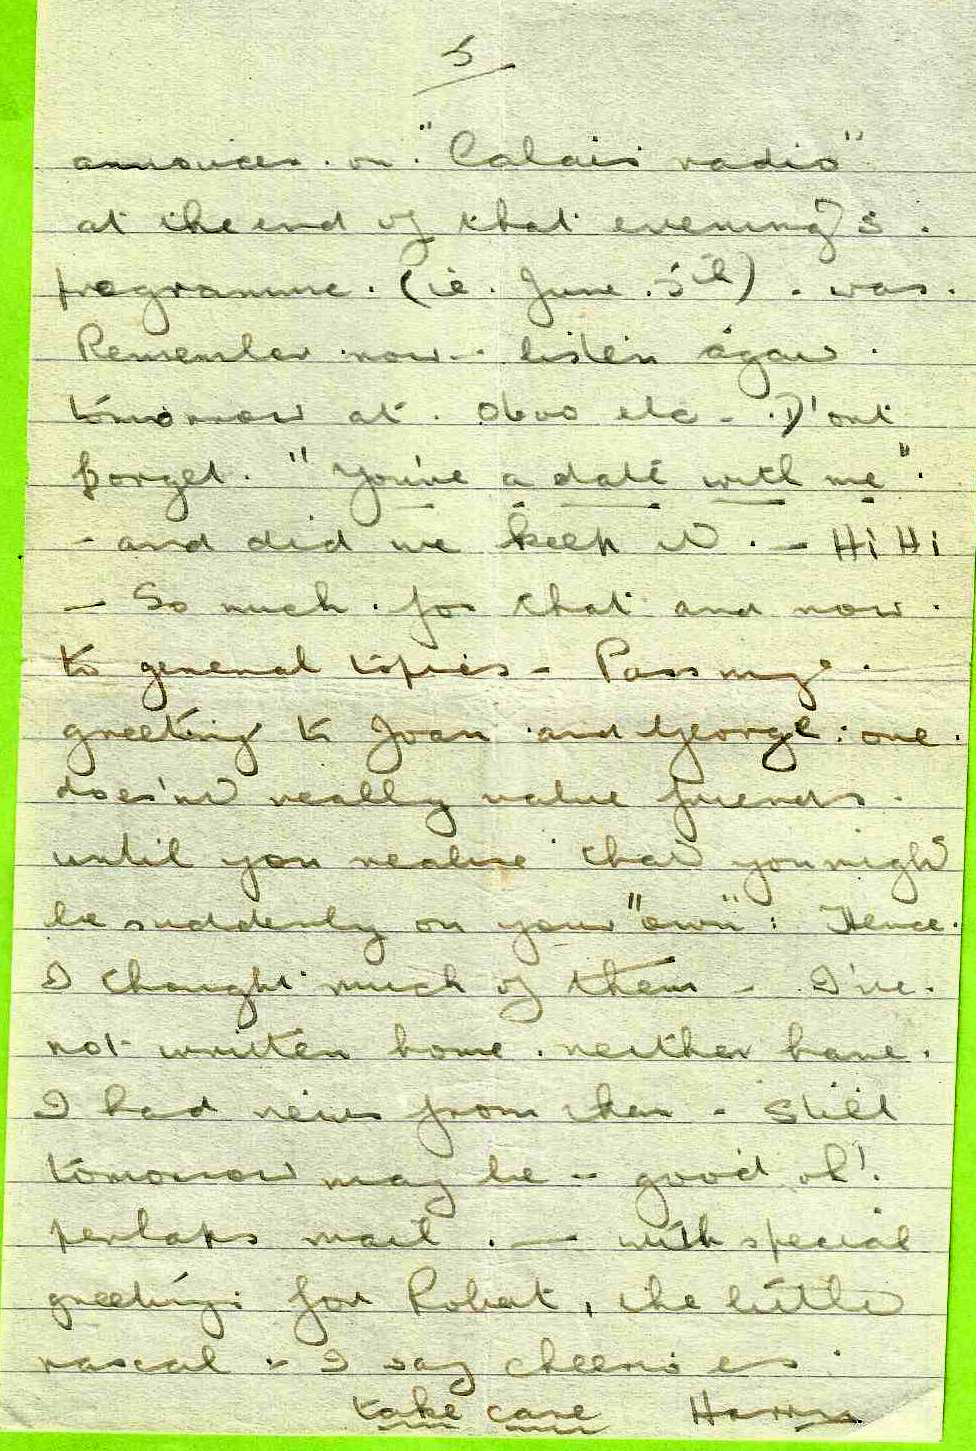 5
announcer on "Calais radio"
at the end of that evening's
programme. (ie. June 5th). was.
Remember now - listen again.
tomorrow at. 0600 etc - D'ont
forget. "You've a date with me".
- and did we keep it. - Hi Hi
- So much. for that and now.
to general topics - Pass my
greeting to Joan and George: one.
does'nt really value friends.
until you realise that you might
be suddenly on your "own": Hence.
I thought much of them - I've.
not written home. neither have.
I had news from them - Still
tomorrow may be - good oh!.
perhaps mail. - with special
greetings for Robert, the little
rascal - I say cheerio
take care Harry